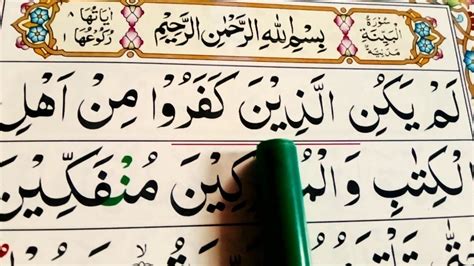 سُوْرَةُ الْبَيِّنَةِ مَدَنِيَّةٌ
بِسْمِ اللهِ الرَّحْمٰنِ الرَّحِيْمِ
اٰيَاتُهَا ٨
رُكُوْعُهَا ١
لَمْ يَكُنِ الَّذِيْنَ كَفَرُوْا مِنْ اَهْلِ
الْكِتٰبِ مُنْفَكِّيْنَ